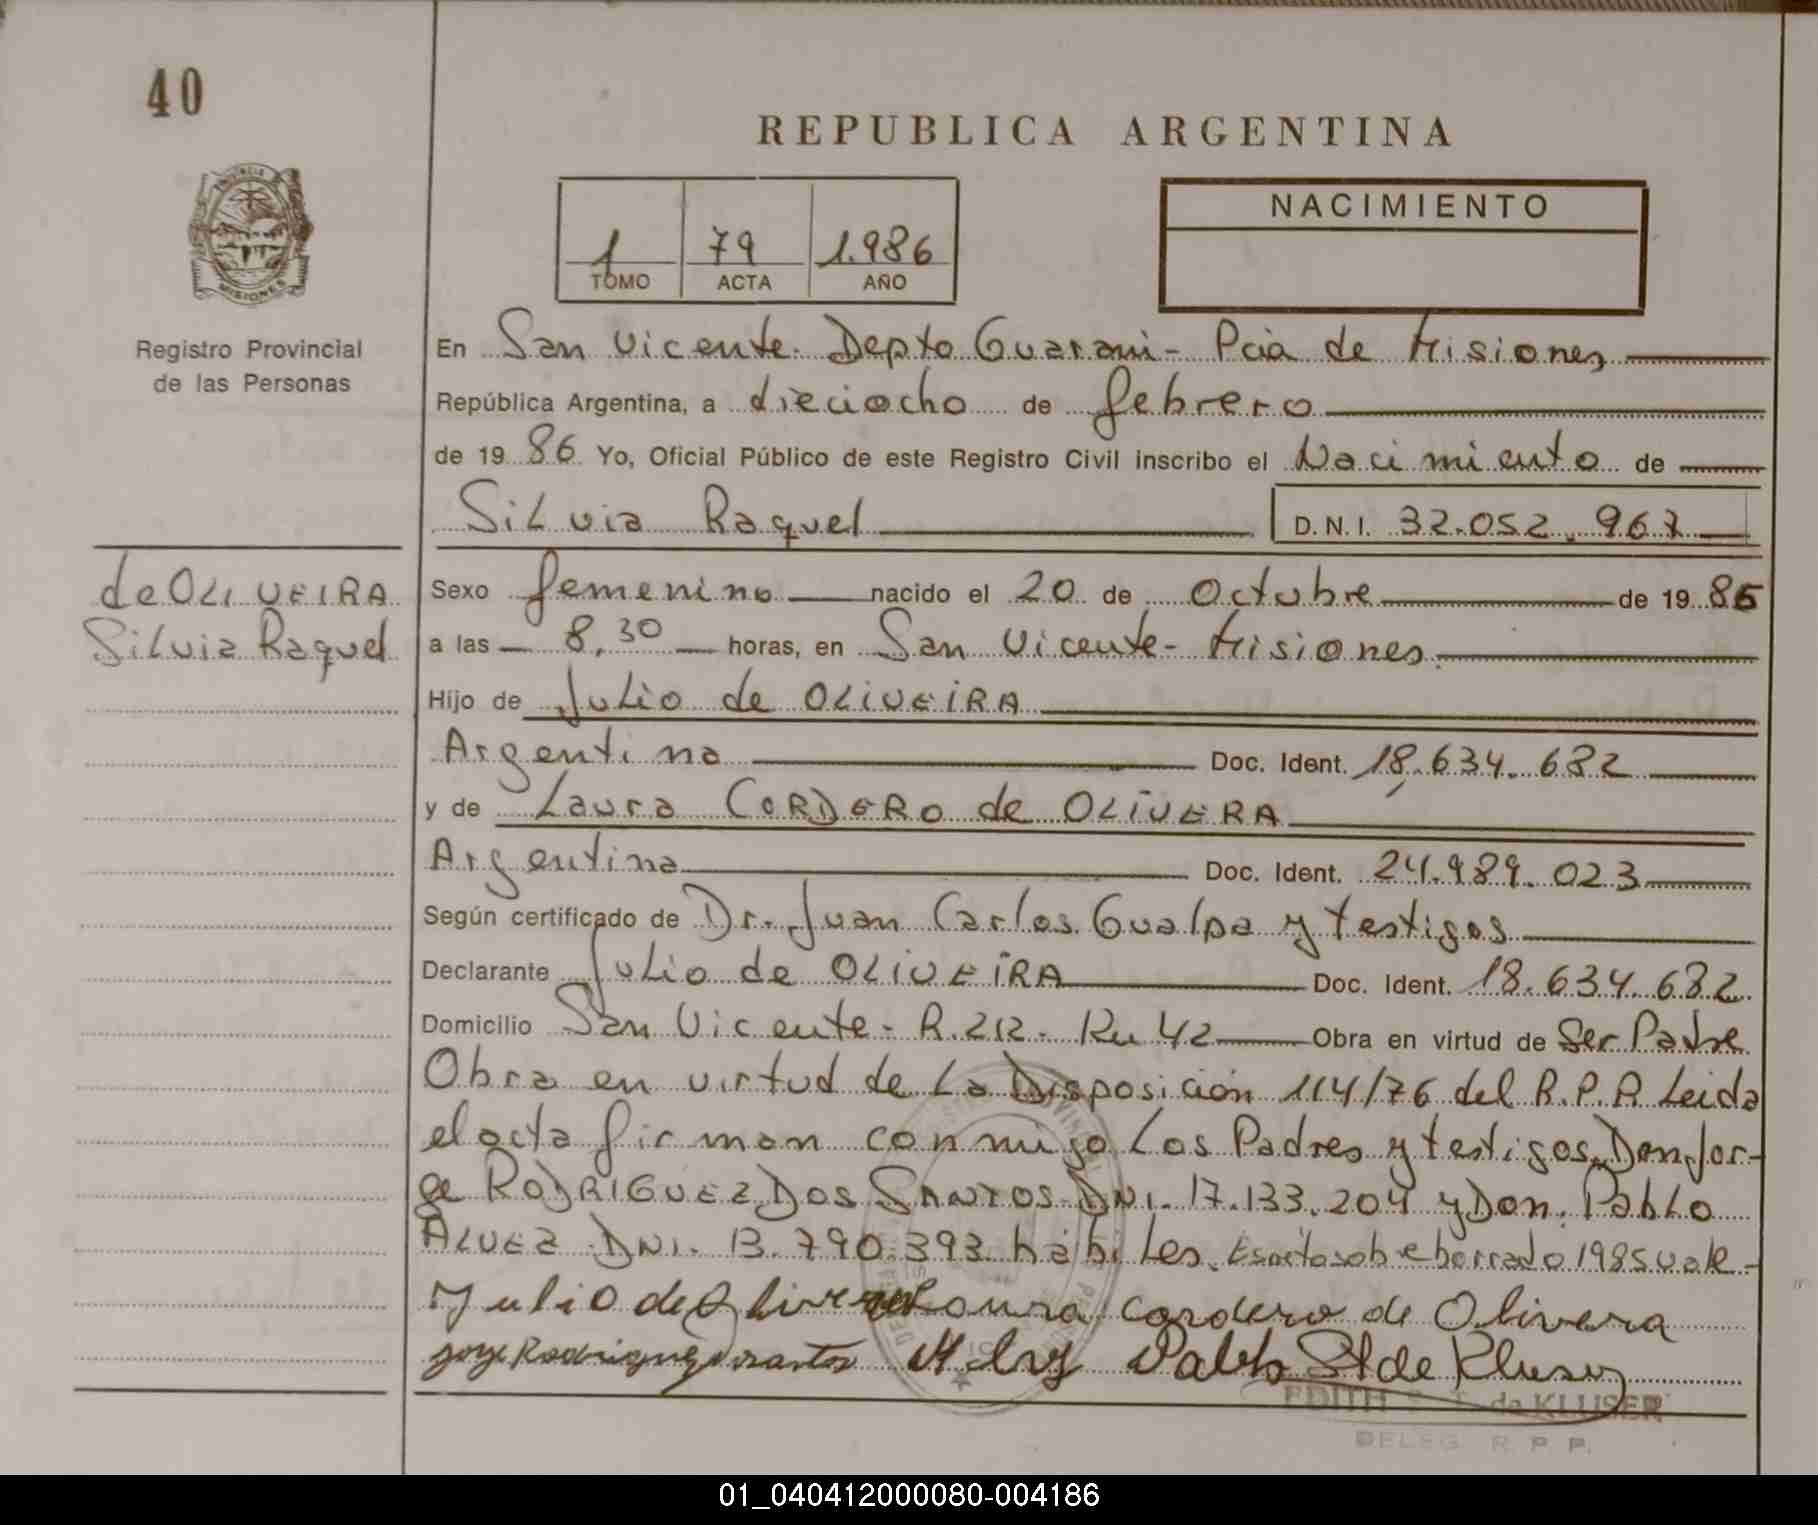 40
REPUBLICA ARGENTINA
1 79 1.986
TOMO ACTA AÑO
NACIMIENTO
PROVINCIA DE
MISIONES
Registro Provincial
de las Personas
En San Vicente. Depto Guarani - Pcia de Misiones
República Argentina, a dieciocho de febrero
de 19 86 Yo, Oficial Público de este Registro Civil inscribo el Nacimiento de
Silvia Raquel D.N.I. 32.052.967
de OLIVEIRA
Silvia Raquel
Sexo femenino nacido el 20 de Octubre de 19 85
a las 8,30 horas, en San Vicente - Misiones.
Hijo de Julio de OLIVEIRA
Argentino Doc. Ident. 18.634.682
y de Laura CORDERO de OLIVERA
Argentina Doc. Ident. 24.989.023
Según certificado de Dr. Juan Carlos Gualpa y testigos
Declarante Julio de OLIVEIRA Doc. Ident. 18.634.682
Domicilio San Vicente - R.212 - Km 42 Obra en virtud de Ser Padre
Obra en virtud de la Disposición 114/76 del R.P.P. Leida
el acta firman conmigo los Padres y testigos, Don Jor-
ge RODRIGUEZ DOS SANTOS DNI. 17.133.204 y Don. Pablo
ALVEZ DNI. 13.790.393 habiles. Escrito sobre borrado 1985 vale -
Julio de Oliveira Laura cordero de Olivera
Jorge Rodriguez Pablo St de Kluser
EDITH de KLUSER
DELEG. R. P. P.
01_040412000080-004186